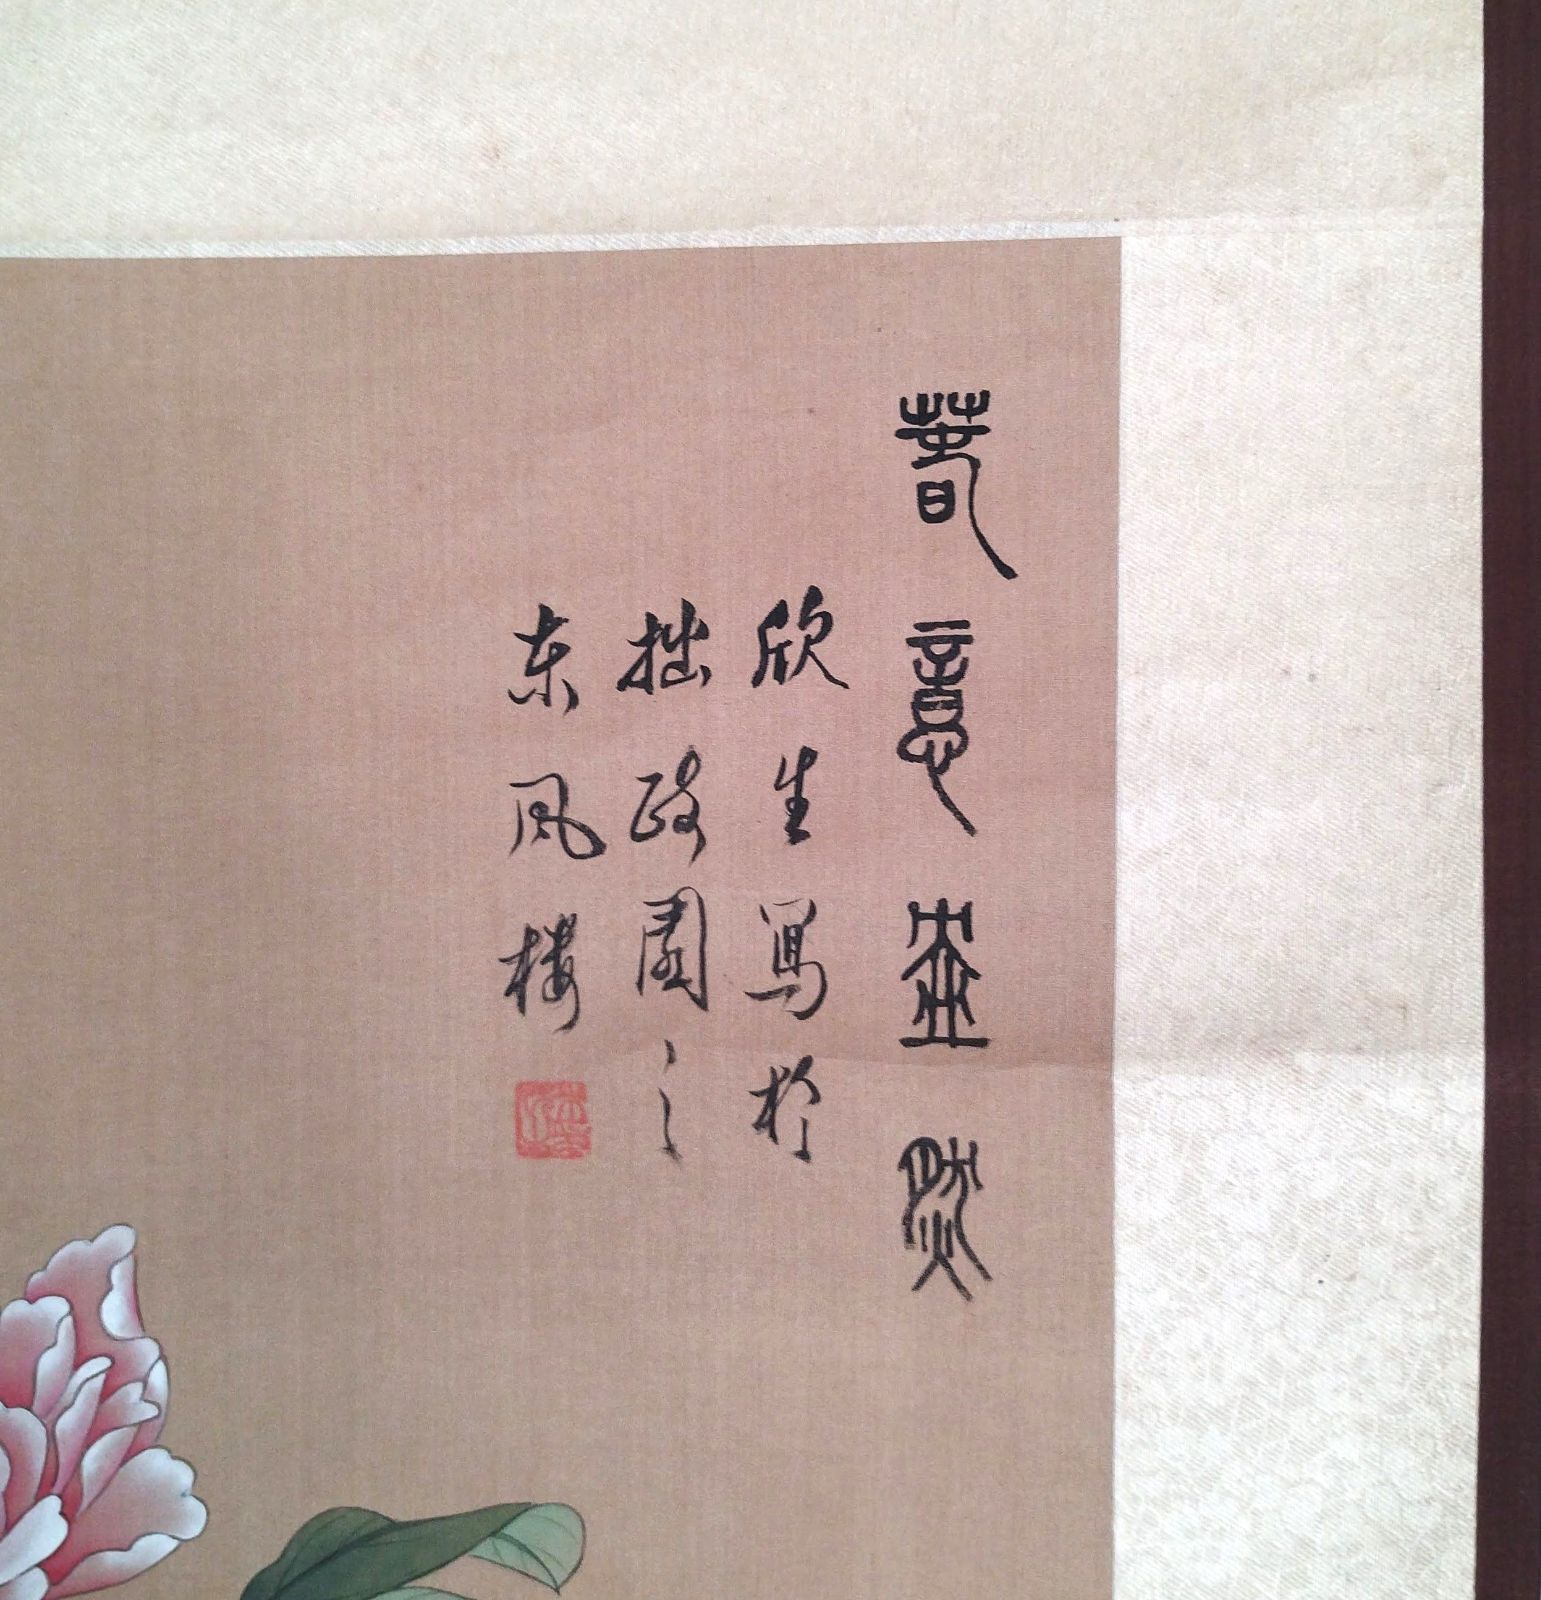 春意盎然
欣生寫於
拙政園之
东风楼